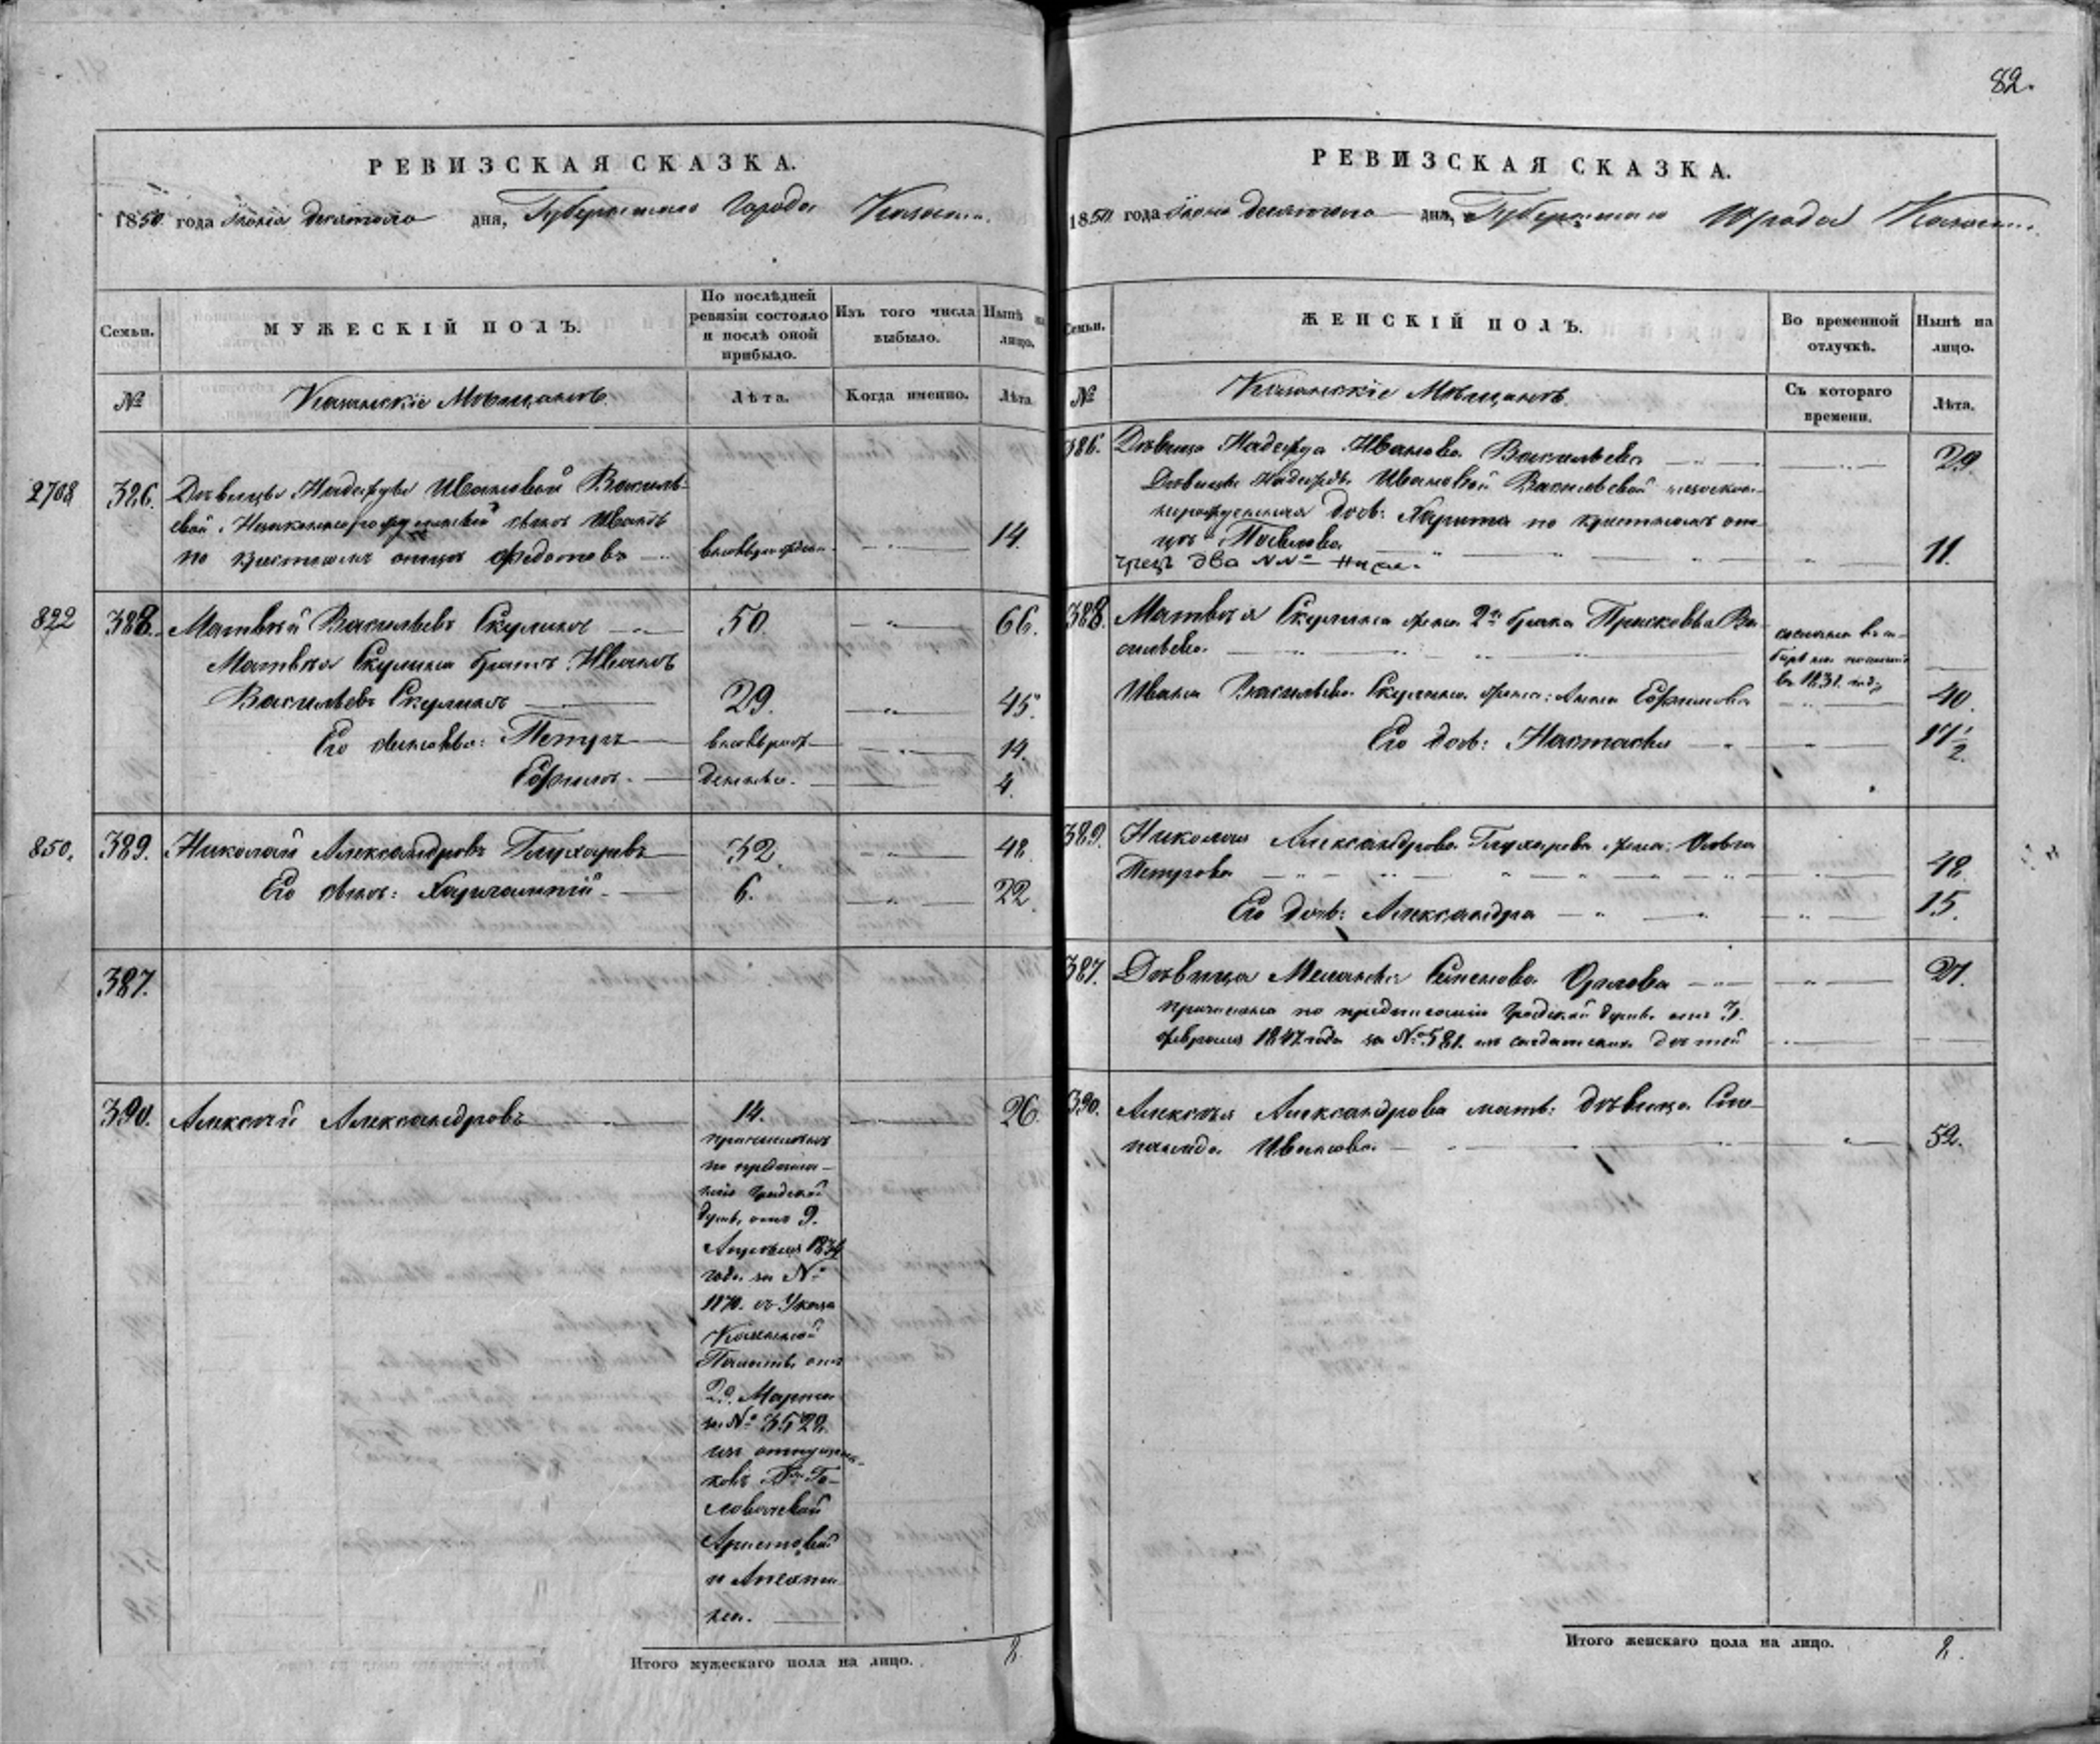 82.
РЕВИЗСКАЯ СКАЗКА.
1850 года Июня десятого дня, Губернскаго Города Казани.
Семьи.
МУЖЕСКІЙ ПОЛЪ.
По послѣдней ревизіи состояло и послѣ оной прибыло.
Изъ того числа выбыло.
Нынѣ на лицо.
№
Казанскіе Мѣщане
Лѣта.
Когда именно.
Лѣта
2708 386. Дѣвицы Надежды Ивановой Василь-
евой, сынъ Иванъ
по крестномъ отцѣ Федотовъ 14.
822 388. Матвѣй Васильевъ Скулинъ 50. 66.
Матвѣя Скулина братъ Иванъ
Васильевъ Скулинъ 29. 45.
Его сыновья: Петръ вновьрож- 14.
Ефимъ. денные. 4.
850. 389. Николай Александровъ Глухаревъ 32 48.
Его сынъ: Харлампій 6. 22.
387.
390. Алексѣй Александровъ 14. 26.
причисленъ
по предписа-
нію Градской
Думы, отъ 9.
Апрѣля 1834
года за №
1170. съ Указа
Казенной
Палаты отъ
29. Марта
за № 3529.
изъ отпущен-
ковъ Гг. Го-
ловачевой
Аристовой
и
Итого мужескаго пола на лицо. 8.
РЕВИЗСКАЯ СКАЗКА.
1850 года Июня десятого дня, Губернскаго Города Казани.
Семьи.
ЖЕНСКІЙ ПОЛЪ.
Во временной отлучкѣ.
Нынѣ на лицо.
№
Казанскіе Мѣщане
Съ котораго времени.
Лѣта.
386. Дѣвица Надежда Иванова Васильева 29.
Дѣвицы Надежды Ивановой Васильевой незакон-
норожденная дочь: Харита по крестномъ от-
цѣ Павлова 11.
чрезъ два №№
388. Матвѣя Скулина жена 2го брака Прасковья Ва-
сильева. сослана въ Си-
бирь на поселеніе
въ 1831. году
Ивана Васильева Скулина жена: Анна Ефимова 40.
Его дочь: Настасья 17 1/2.
389. Николая Александрова Глухарева жена:
Петрова 48.
Его дочь: Александра 15.
387. Дѣвица Меланья Семенова Орлова 27.
причислена по предписанію Градской думы отъ 3.
февраля 1847 года за № 581. изъ солдатскихъ дѣтей
390. Алексѣя Александрова мать: дѣвица Сте-
панида Иванова 52.
Итого женскаго пола на лицо. 8.